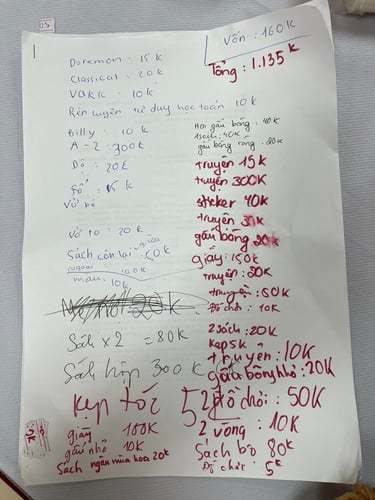 03
Vốn : 160K
Tổng : 1.135K
Doremon : 15K
Classical : 20K
VBKK : 10K
Rèn luyện tư duy học toán 10K
Billy : 10K
A - Z : 300K
Dộ : 20K
Sổ : 15K
Vở bé
Vở to : 20K
Sách còn lại : 50K
Ngoài 100K
màu : 10K
20K
Sách x2 = 80K
Sách hộp 300K
Kẹp tóc 52
giày 100K
gấu nhỏ 10K
Sách ngàn mùa hoa 20K
Hai gấu bông : 40K
1 sách : 40K
gấu bông : 20K
truyện 15K
truyện 300K
sticker 40K
truyện 30K
gấu bông 20K
giày : 150K
truyện : 20K
truyện : 50K
Đồ chơi : 10K
2 sách : 20K
Kẹp 5K
truyện : 10K
gấu bông nhỏ : 20K
đồ chơi : 50K
2 vòng : 10K
Sách bộ 80K
Đồ chơi 5K